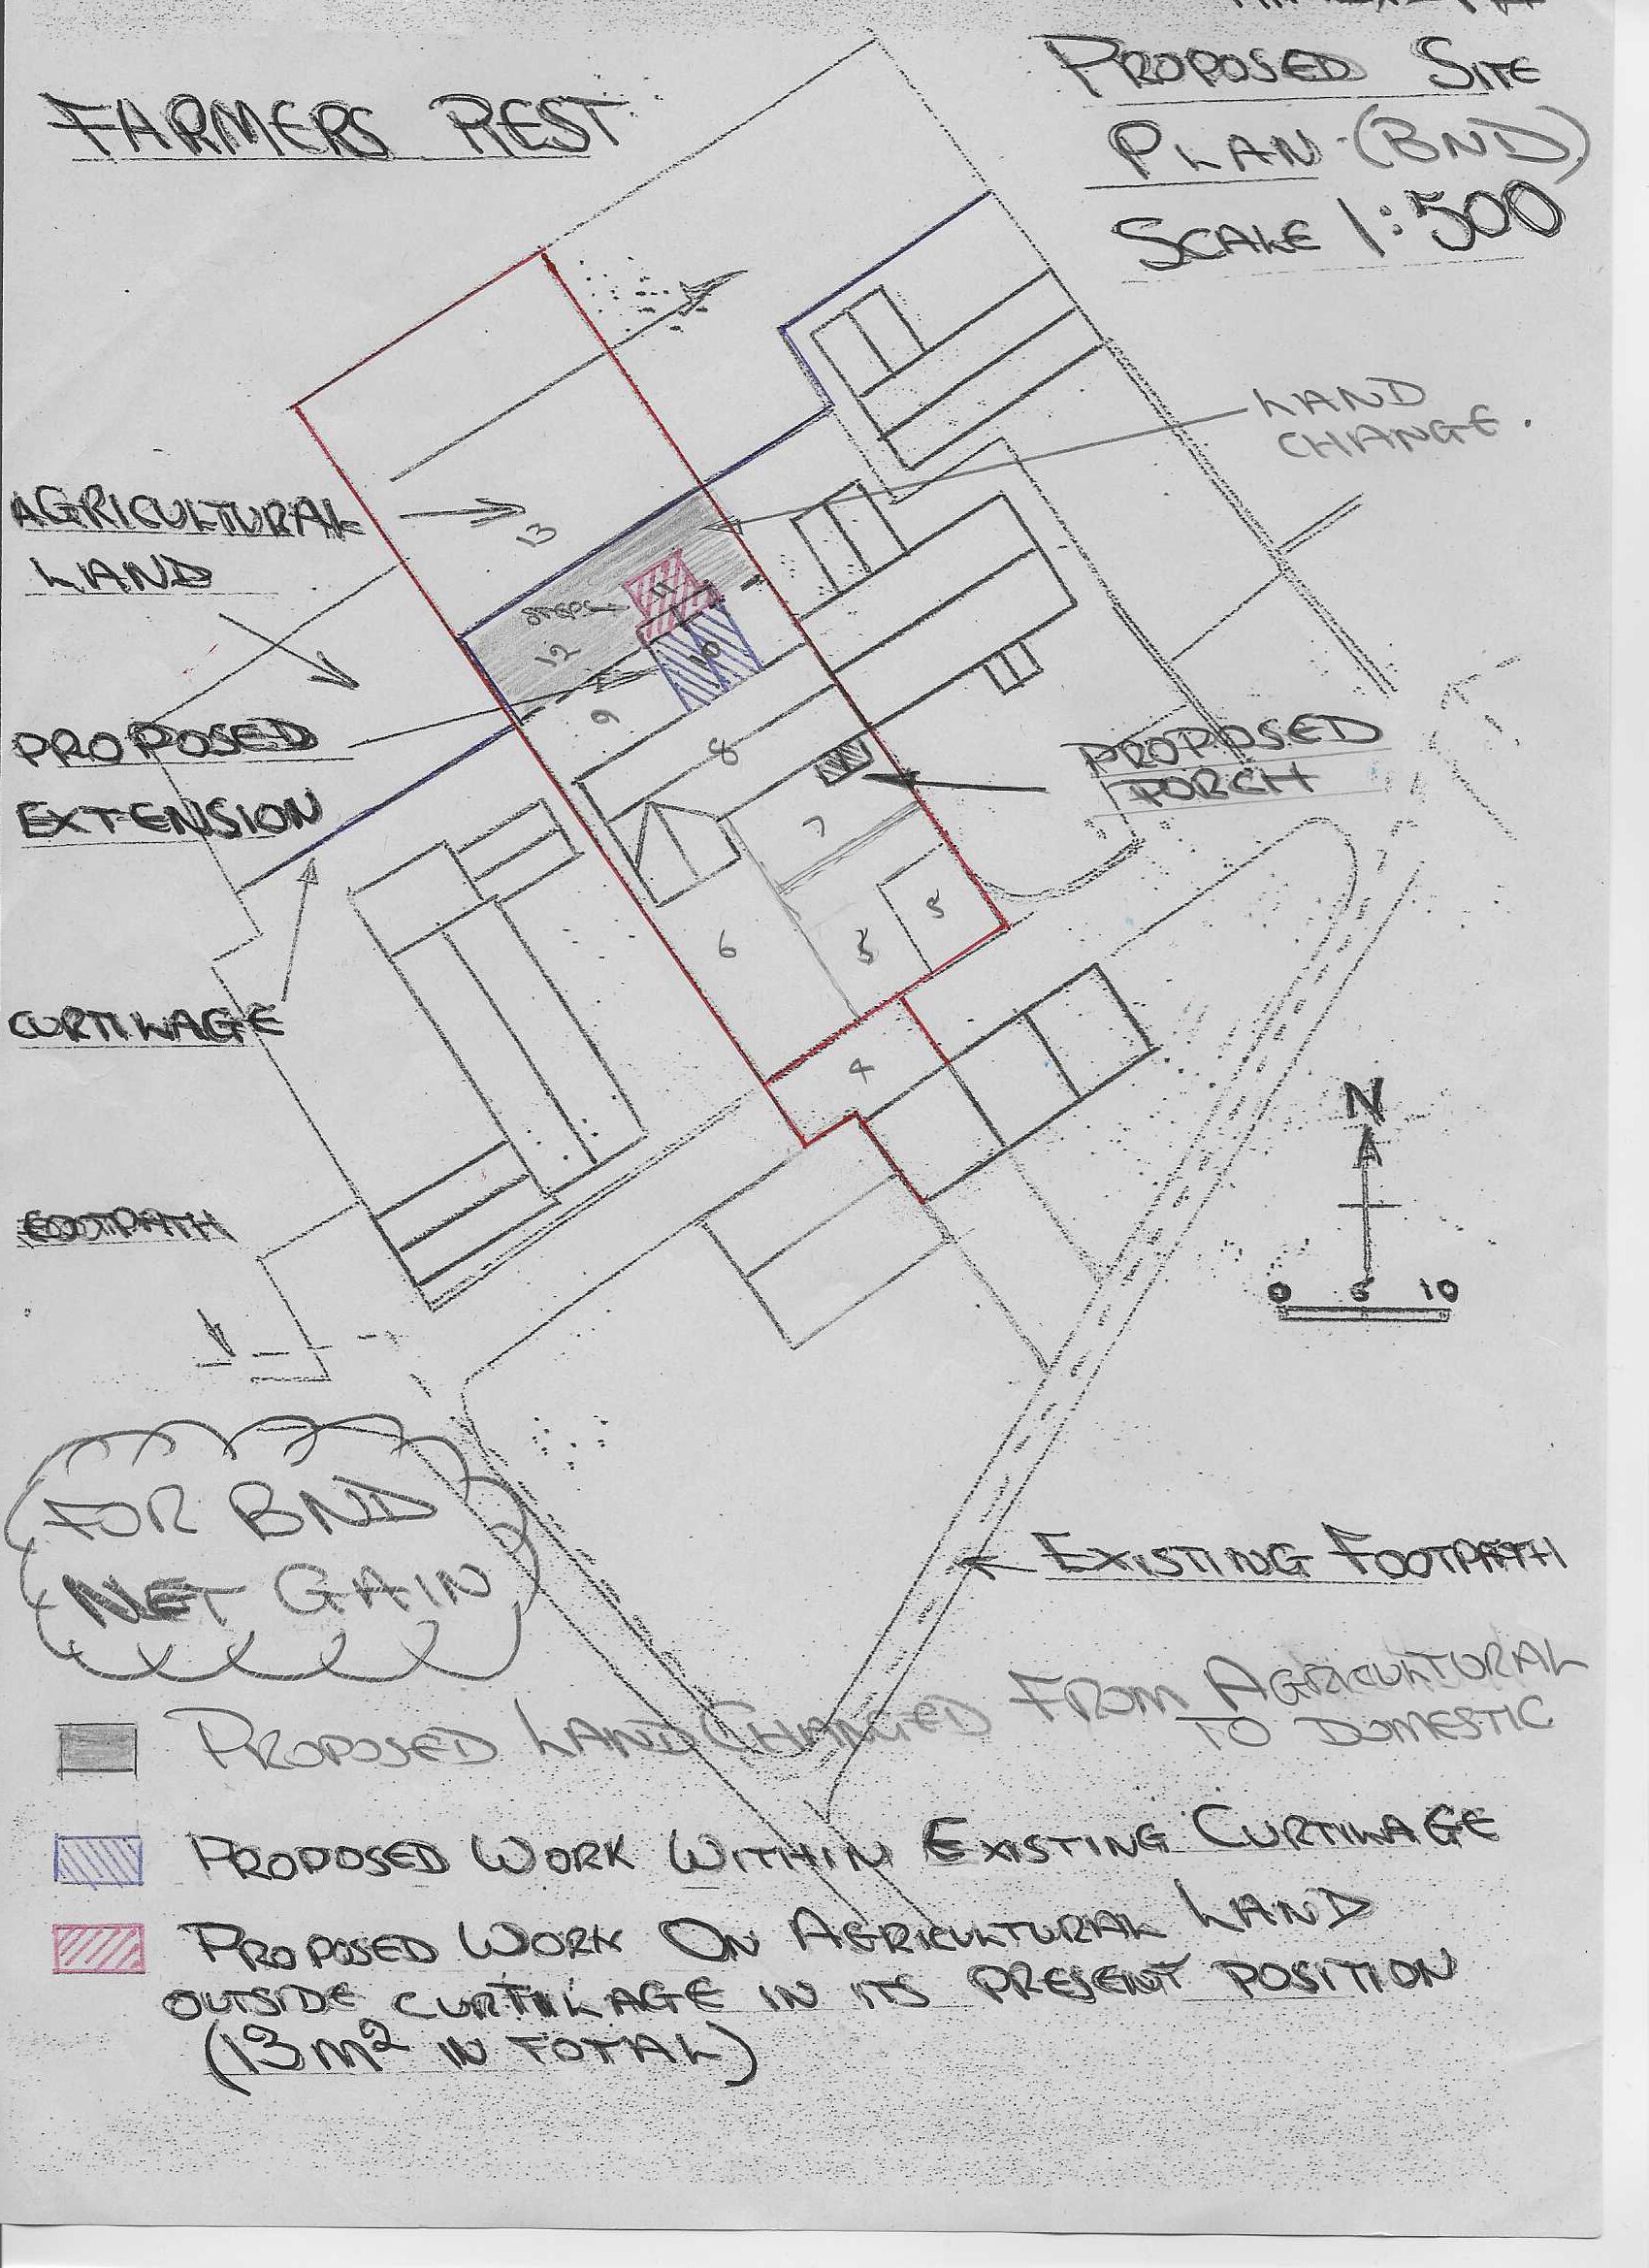 FARMERS REST
PROPOSED SITE
PLAN (BND)
SCALE 1:500
LAND
CHANGE.
AGRICULTURAL
LAND
13
11
12
10
9
PROPOSED
EXTENSION
8
PROPOSED
PORCH
7
5
6
CURTILAGE
4
N
FOOTPATH
0 5 10
FOR BND
NET GAIN
EXISTING FOOTPATH
PROPOSED LAND CHANGED FROM AGRICULTURAL
TO DOMESTIC
PROPOSED WORK WITHIN EXISTING CURTILAGE
PROPOSED WORK ON AGRICULTURAL LAND
OUTSIDE CURTILAGE IN ITS PRESENT POSITION
(13m2 IN TOTAL)